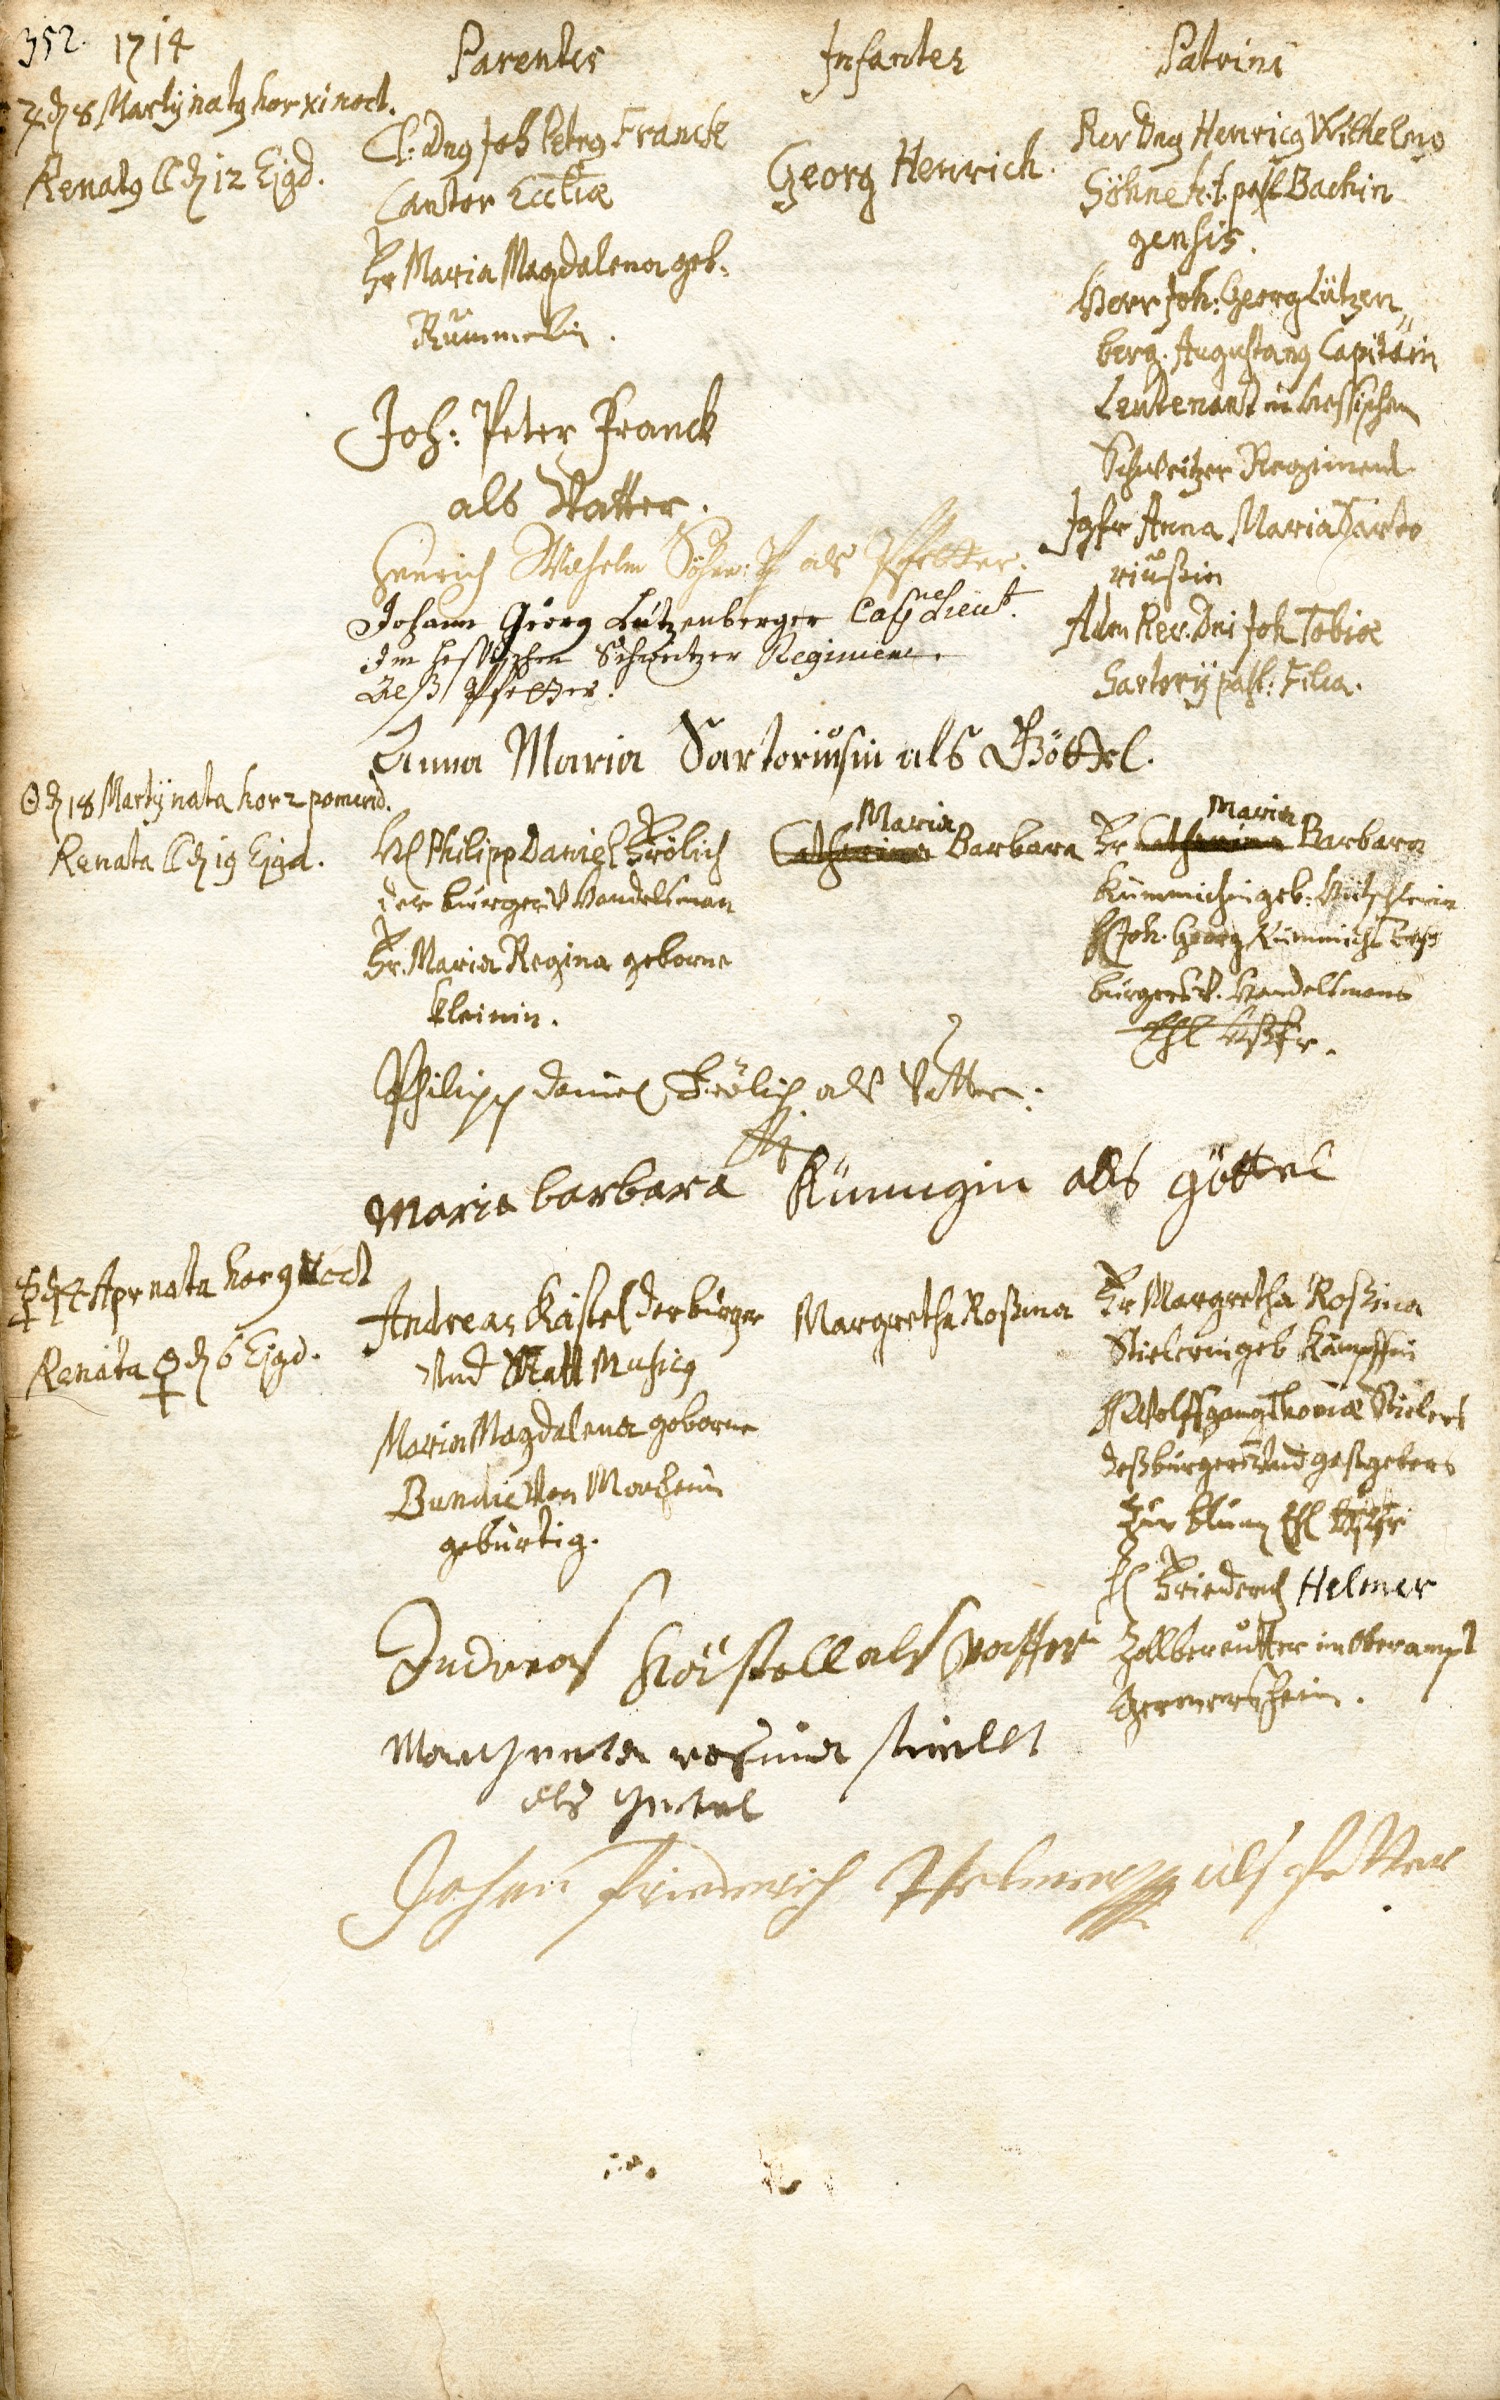 352. 1714
Parentes
Infantes
Patrini
♃ d 8 Martij natq hor xi noct.
Renatq ☾ d 12 Ejqd.
Cl: Dnq Joh Petrq Franck
Cantor Eccliæ
Fr Maria Magdalena geb.
Rummelin.
Georg Henrich.
Rev Dnq Henricq Wilhelmq
Söhne h. t. past Bachin
gensis.
Herr Joh: Georg Lützen
berg. Augustanq Capitain
Leutenant in hessischen
Schweitzer Regiment
Jgfr Anna Maria Sarto
riusin
Adm Rev. Dni Joh Tobiæ
Sartorij past: Filia.
Joh: Peter Franck
als Vatter.
Henrich Wilhelm Söhne: Pf als Pfetter.
Johann Georg Lützenberger Capne Lieut.
im hessischen Schweitzer Regiment.
Alß Pfetter.
Anna Maria Sartoriusin als Göttel.
☉ d 18 Martij nata hor 2 pomerid.
Renata ☾ d 19 Ejqd.
H Philipp Daniel Frölich
der burger V Handelsman
Fr. Maria Regina geborne
Kleinin.
Maria
Catharina Barbara
Maria
Fr Catharina Barbara
Kümmichin geb:
H Joh. Georg Kümmichs deß
burgers V. Handelsmans
Ehl Hßfr.
Philipp Daniel Frölich als Vatter.
Maria barbara Kümmgin als göttel
☿ d 4 Apr nata hor 9 Noct
Renata ♀ d 6 Ejqd.
Andreas Kästel der burger
Und Statt Musicq
Maria Magdalena geborne
Von Morheim
gebürtig.
Margretha Roßina
Fr Margretha Roßina
Stielerin geb Kämpffin
H Wolffgang Thomæ Stielers
deß burgers Und gastgebers
Zur blum Ehl Hßfr
H Friederich Helmer
Zollbereutter im Oberampt
Germersheim.
Andreas Kästell als Vatter
Margreta rosina stiellr
als gettel
Johan Friederich Helmer als Pfetter